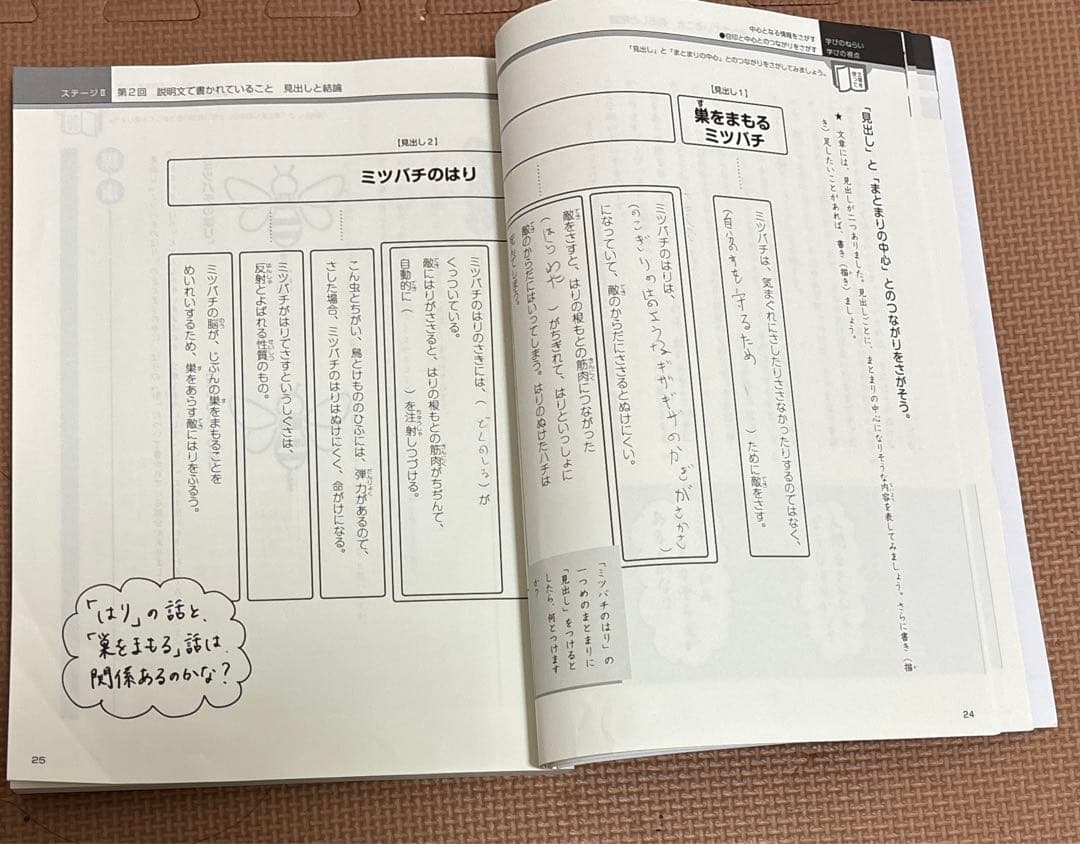 中心となる情報をさがす
●目印と中心とのつながりをさがす
学びのねらい
学びの視点
「見出し」と「まとまりの中心」とのつながりをさがしてみましょう。
「見出し」と「まとまりの中心」とのつながりをさがそう。
★ 文章には、見出しが二つありました。見出しごとに、まとまりの中心になりそうな内容を表してみましょう。さらに書き（描
き）足したいことがあれば、書き（描き）ましょう。
【見出し1】
巣をまもる
ミツバチ
ミツバチは、気まぐれにさしたりささなかったりするのではなく、
（自分のすを守るため）ために敵をさす。
ミツバチのはりは、
（のこぎりのはのようなギザギザのかぎがさかさ）
になっていて、敵のからだにささるとぬけにくい。
敵をさすと、はりの根もとの筋肉につながった
（はらわた）がちぎれて、はりといっしょに
敵のからだにはいってしまう。はりのぬけたハチは
「ミツバチのはり」の
一つめのまとまりに
「見出し」をつけると
したら、何とつけます
か？
24
ステージⅡ 第2回 説明文で書かれていること 見出しと結論
【見出し2】
ミツバチのはり
ミツバチのはりのさきには、（どくのしる）が
くっついている。
敵にはりがささると、はりの根もとの筋肉がちぢんで、
自動的に（ ）を注射しつづける。
こん虫とちがい、鳥とけもののひふには、弾力があるので、
さした場合、ミツバチのはりはぬけにくく、命がけになる。
ミツバチがはりでさすというしぐさは、
反射とよばれる性質のもの。
ミツバチの脳が、じぶんの巣をまもることを
めいれいするため、巣をあらす敵にはりをふるう。
「はり」の話と、
「巣をまもる」話は、
関係あるのかな？
25